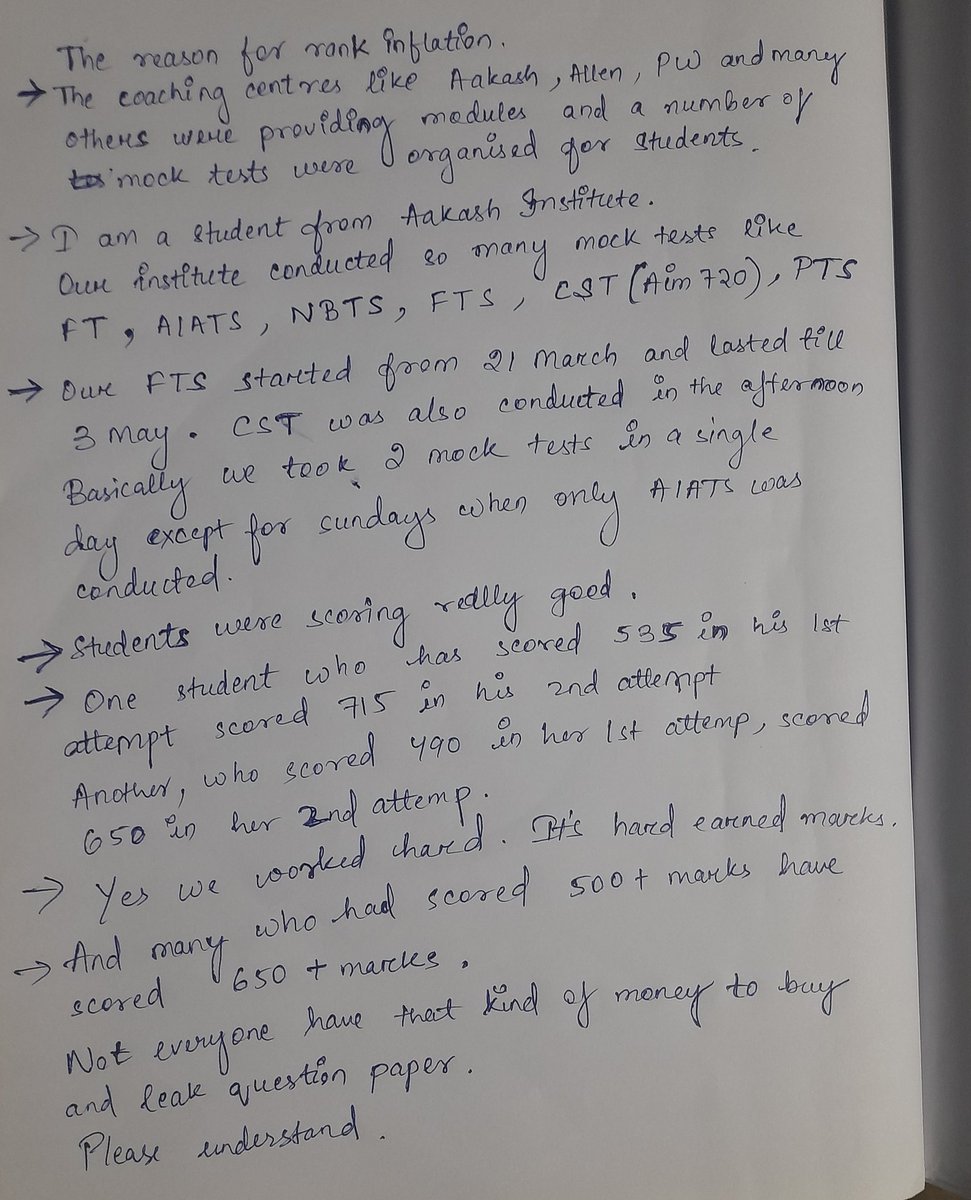 The reason for rank inflation.
→ The coaching centres like Aakash, Allen, PW and many
others were providing modules and a number of
mock tests were organised for students.
→ I am a student from Aakash Institute.
Our institute conducted so many mock tests like
FT, AIATS, NBTS, FTS, CST (Aim 720), PTS
→ Our FTS started from 21 March and lasted till
3 may. CST was also conducted in the afternoon
Basically we took 2 mock tests in a single
day except for sundays when only AIATS was
conducted.
→ Students were scoring really good.
→ One student who has scored 535 in his 1st
attempt scored 715 in his 2nd attempt
Another, who scored 490 in her 1st attemp, scored
650 in her 2nd attemp.
→ Yes we worked hard. It's hard earned marks.
→ And many who had scored 500+ marks have
scored 650+ marks.
Not everyone have that kind of money to buy
and leak question paper.
Please understand.